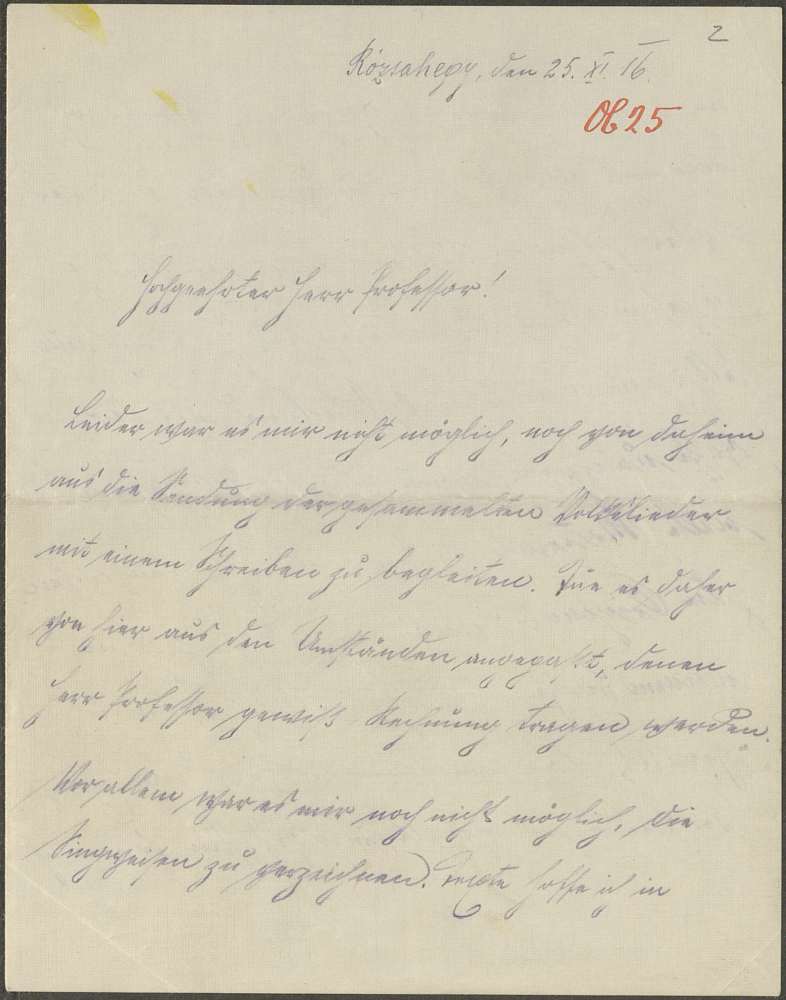 2
Rózsahegy, den 25. XI. 16.
Ob 25
Hochgeehrter Herr Professor!
Leider war es mir nicht möglich, noch von daheim
aus die Sendung der gesammelten Volkslieder
mit einem Schreiben zu begleiten. Tue es daher
von hier aus den Umständen angepaßt, denen
Herr Professor gewiß Rechnung tragen werden.
Vor allem war es mir noch nicht möglich, die
Singweisen zu verzeichnen. Texte hoffe ich in